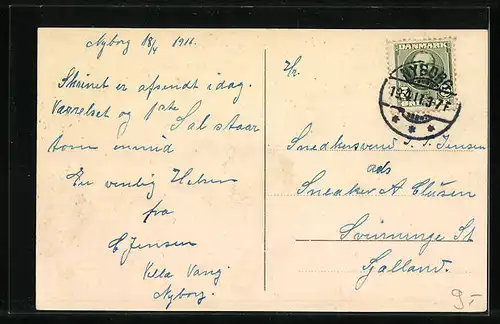 Nyborg 18/4 1911.
Skrinet er afsendt i dag.
Værelset og 1ste Sal staar
tom
En venlig Hilsen
fra
C Jensen
Villa Vang
Nyborg.
DANMARK
NYBORG
19.4.11. 3-7 F
Hr.
Snedkersvend J. J. Jensen
ads
Snedker A Clausen
Svinninge St
Sjælland.
9-